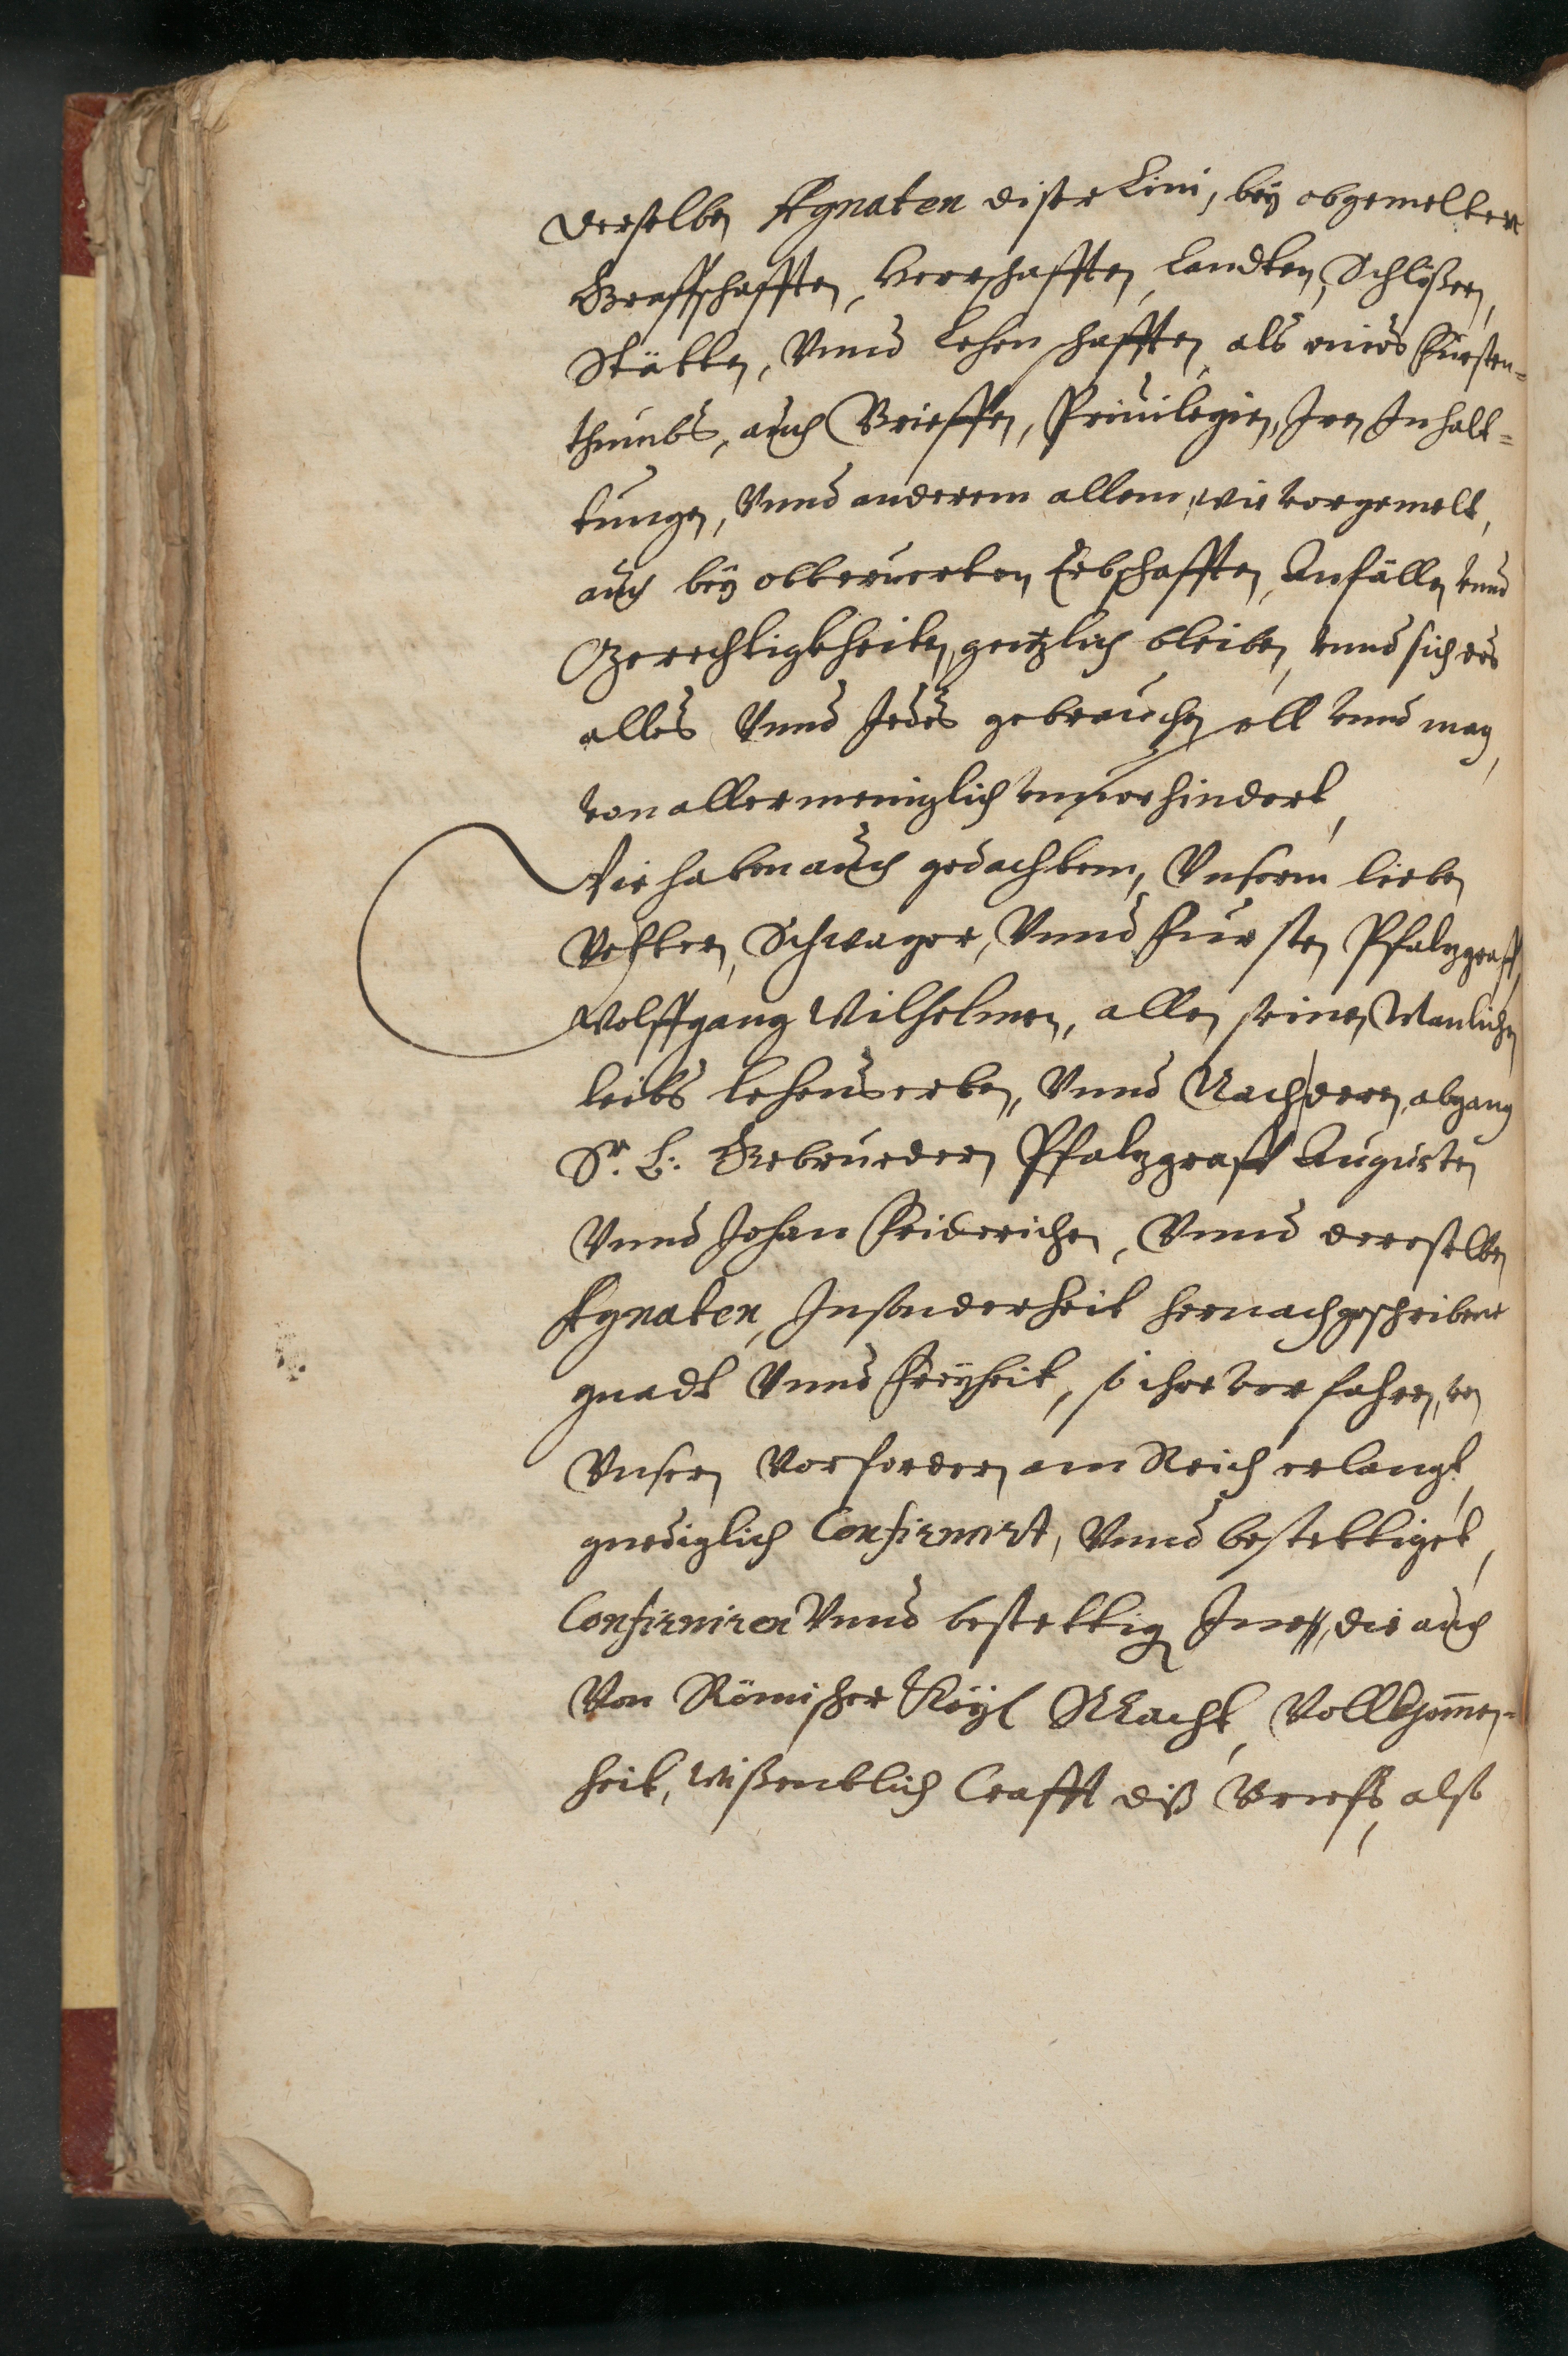 derselben Agnaten diser Lini, bey obgemelten
Graffschafften, Herrschafften, Landten, Schlößern,
Stätten, Vnnd Lehenschafften, als eines Fürsten=
thumbs, auch Brieffen, Priuilegien, Iren Inhalt=
tungen, Vnnd anderem allem, wie vorgemelt,
auch bey obberuerten Erbschafften, Anfällen vnnd
Gerechtigkheiten, gentzlich bleiben, vnnd sich des
alles Vnnd Jedes gebrauchen soll vnnd mag,
von allermeniglich vnuerhindert,
Wir haben auch gedachtem, Vnserm lieben
Vettern, Schwager, Vnnd Fursten Pfalzgraff
Wolffgang Wilhelmen, allen seinen Manlichen
leibs lehenserben, Vnnd Nach deren, abgang
Sr. L: Gebruedern Pfalzgraff Augusten
Vnnd Johan Friderichen, Vnnd derselben
Agnaten, Insonderheit hernachgeschribene
gnadt Vnnd Freyheit, so ihre vorfahren, von
Vnsern Vorfordern am Reich erlangt,
gnediglich Confirmirt, Vnnd bestettiget,
Confirmiren Vnnd bestettigen Inen, die auch
Von Römischer Kayl Macht, Vollkhom̄en=
heit, wißentlich Crafft diß Brieffs, also